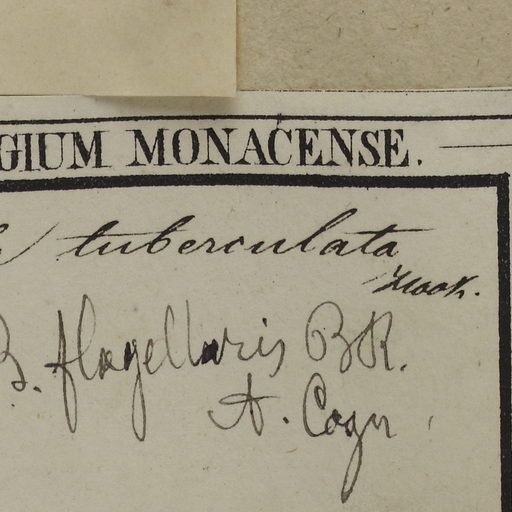 GIUM MONACENSE.
tuberculata
Hook.
B. flagellaris BR.
A. Cogn